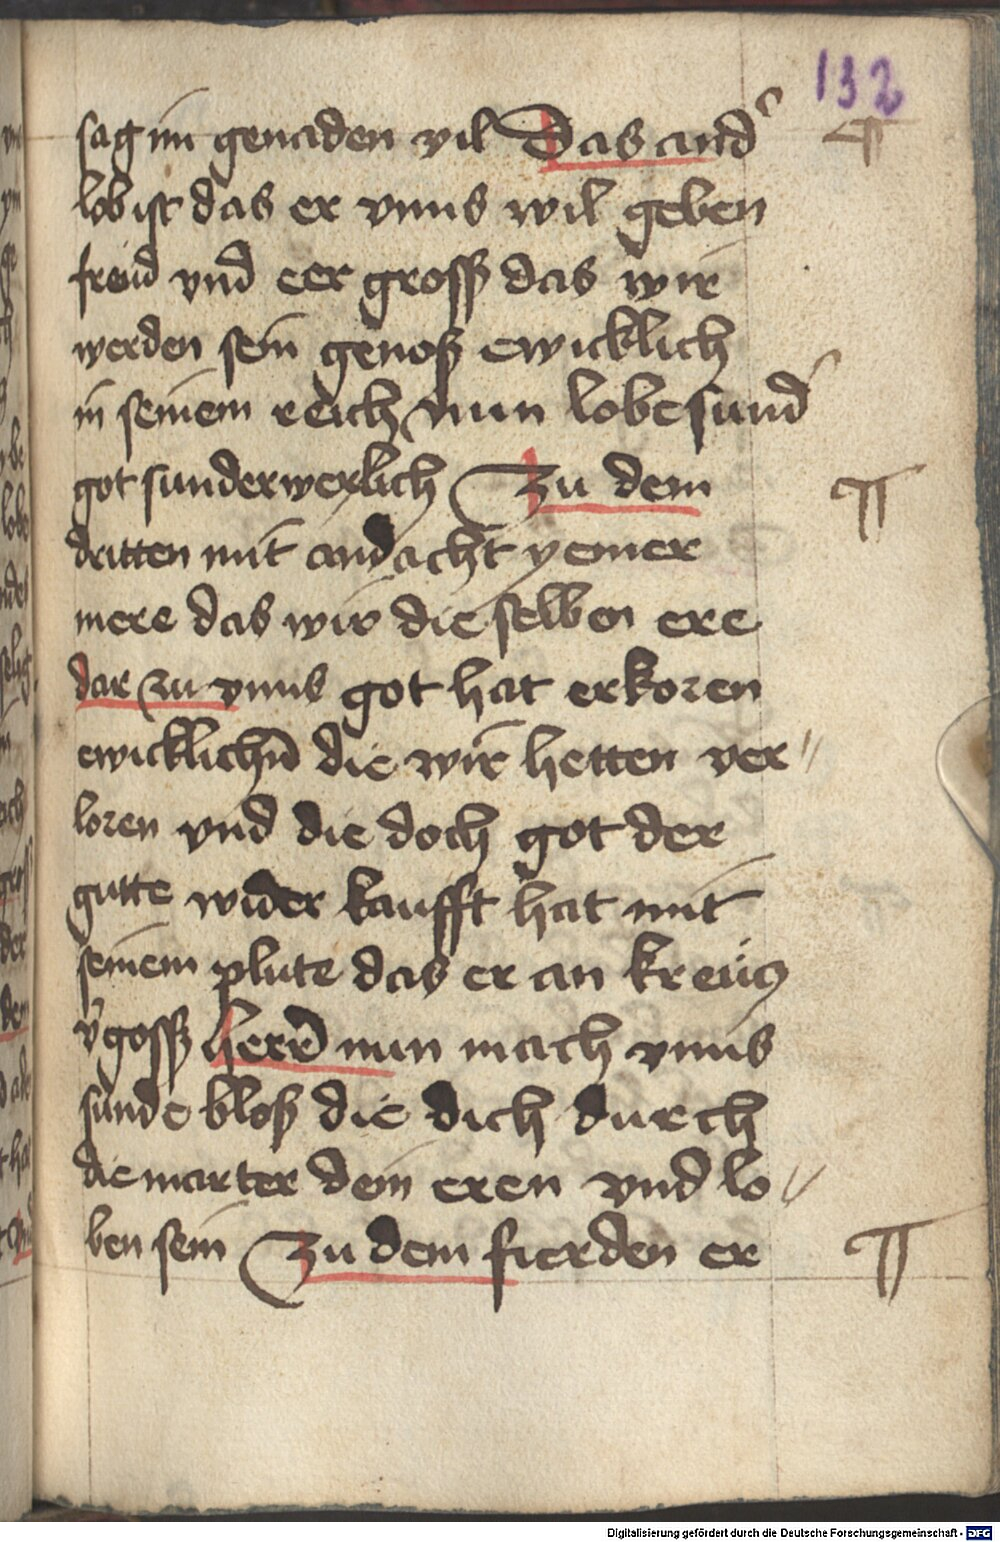 132
sag im genaden vil Das and̛
lob ist das er vnns wil geben
freud vnd eer gross das wir
werden sein genoß ewicklich
in seinem reich nun lobe sund̛
got sunderwerlich Zu dem
dritten mit andacht yemer
mere das wir die selben ere
dar zu vnns got hat erkoren
ewicklichn̄ die wir hetten ver //
loren vnd die doch got der
gutte wider kaufft hat mit
seinem plute das er an kreücz
v̛goss herr̄ nun mach vnns
sunde bloß die dich durch
die marter dein eren vnd lo //
ben sein Zu dem fierden er
Digitalisierung gefördert durch die Deutsche Forschungsgemeinschaft - DFG